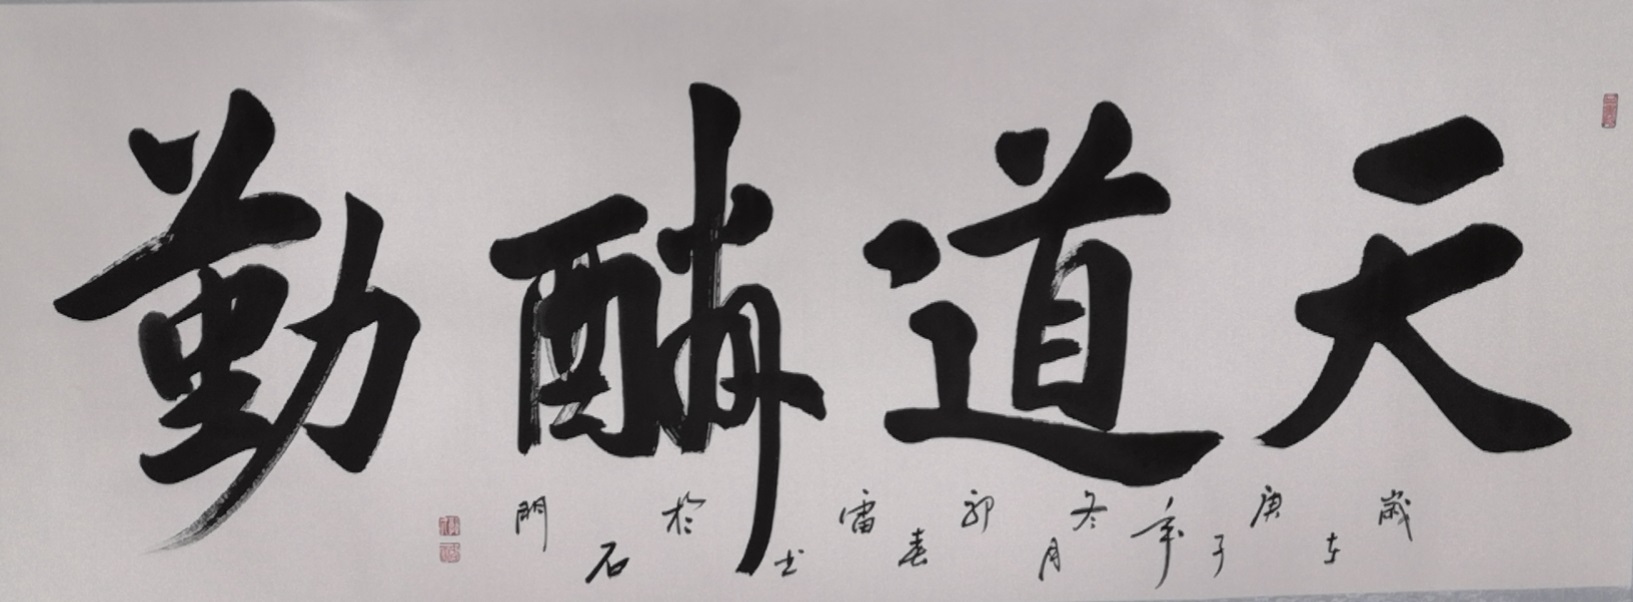 天道酬勤
歲在庚子年冬月郭春雷书於石門